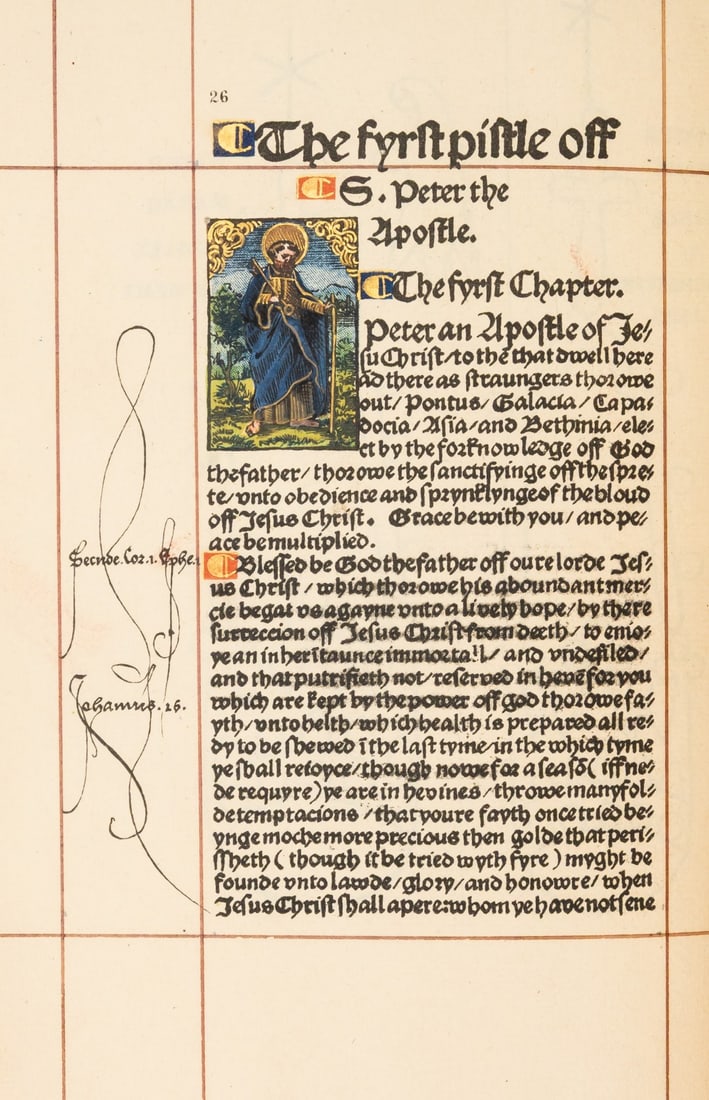 26
The fyrst pistle off
S. Peter the
Apostle.
The fyrst Chapter.
Peter an Apostle of Je/
su Christ/to thē that dwell here
ād there as straungers thorowe
out/ Pontus/ Galacia/ Capa/
docia/ Asia/and Bethinia/ele/
ct by the forknowledge off God
the father/ thorowe the sanctifyinge off the spre/
te/vnto obedience and sprynklynge of the bloud
off Jesus Christ. Grace be with you/ and pe/
ace be multiplied.
Secnde. Cor. 1. Ephe. 1
Blessed be God the father off oure lorde Jes/
us Christ/which thorowe his aboundant mer/
cie begat vs agayne vnto a lively hope/by there
surreccion off Jesus Christ from deeth/to enio/
ye an inheritaunce immortall/ and vndefiled/
and that putrifieth not/reserved in hevē for you
which are kept by the power off god thorowe fa/
Johannes. 16.
yth/vnto helth/which health is prepared all re/
dy to be shewed ī the last tyme/in the which tyme
ye shall reioyce/though nowe for a seasō( iff ne/
de requyre) ye are in hevines/throwe manyfol/
de temptacions/that youre fayth once tried be/
ynge moche more precious then golde that peri/
ssheth ( though it be tried wyth fyre ) myght be
founde vnto lawde/glory/and honowre/when
Jesus Christ shall apere:whom ye have not sene